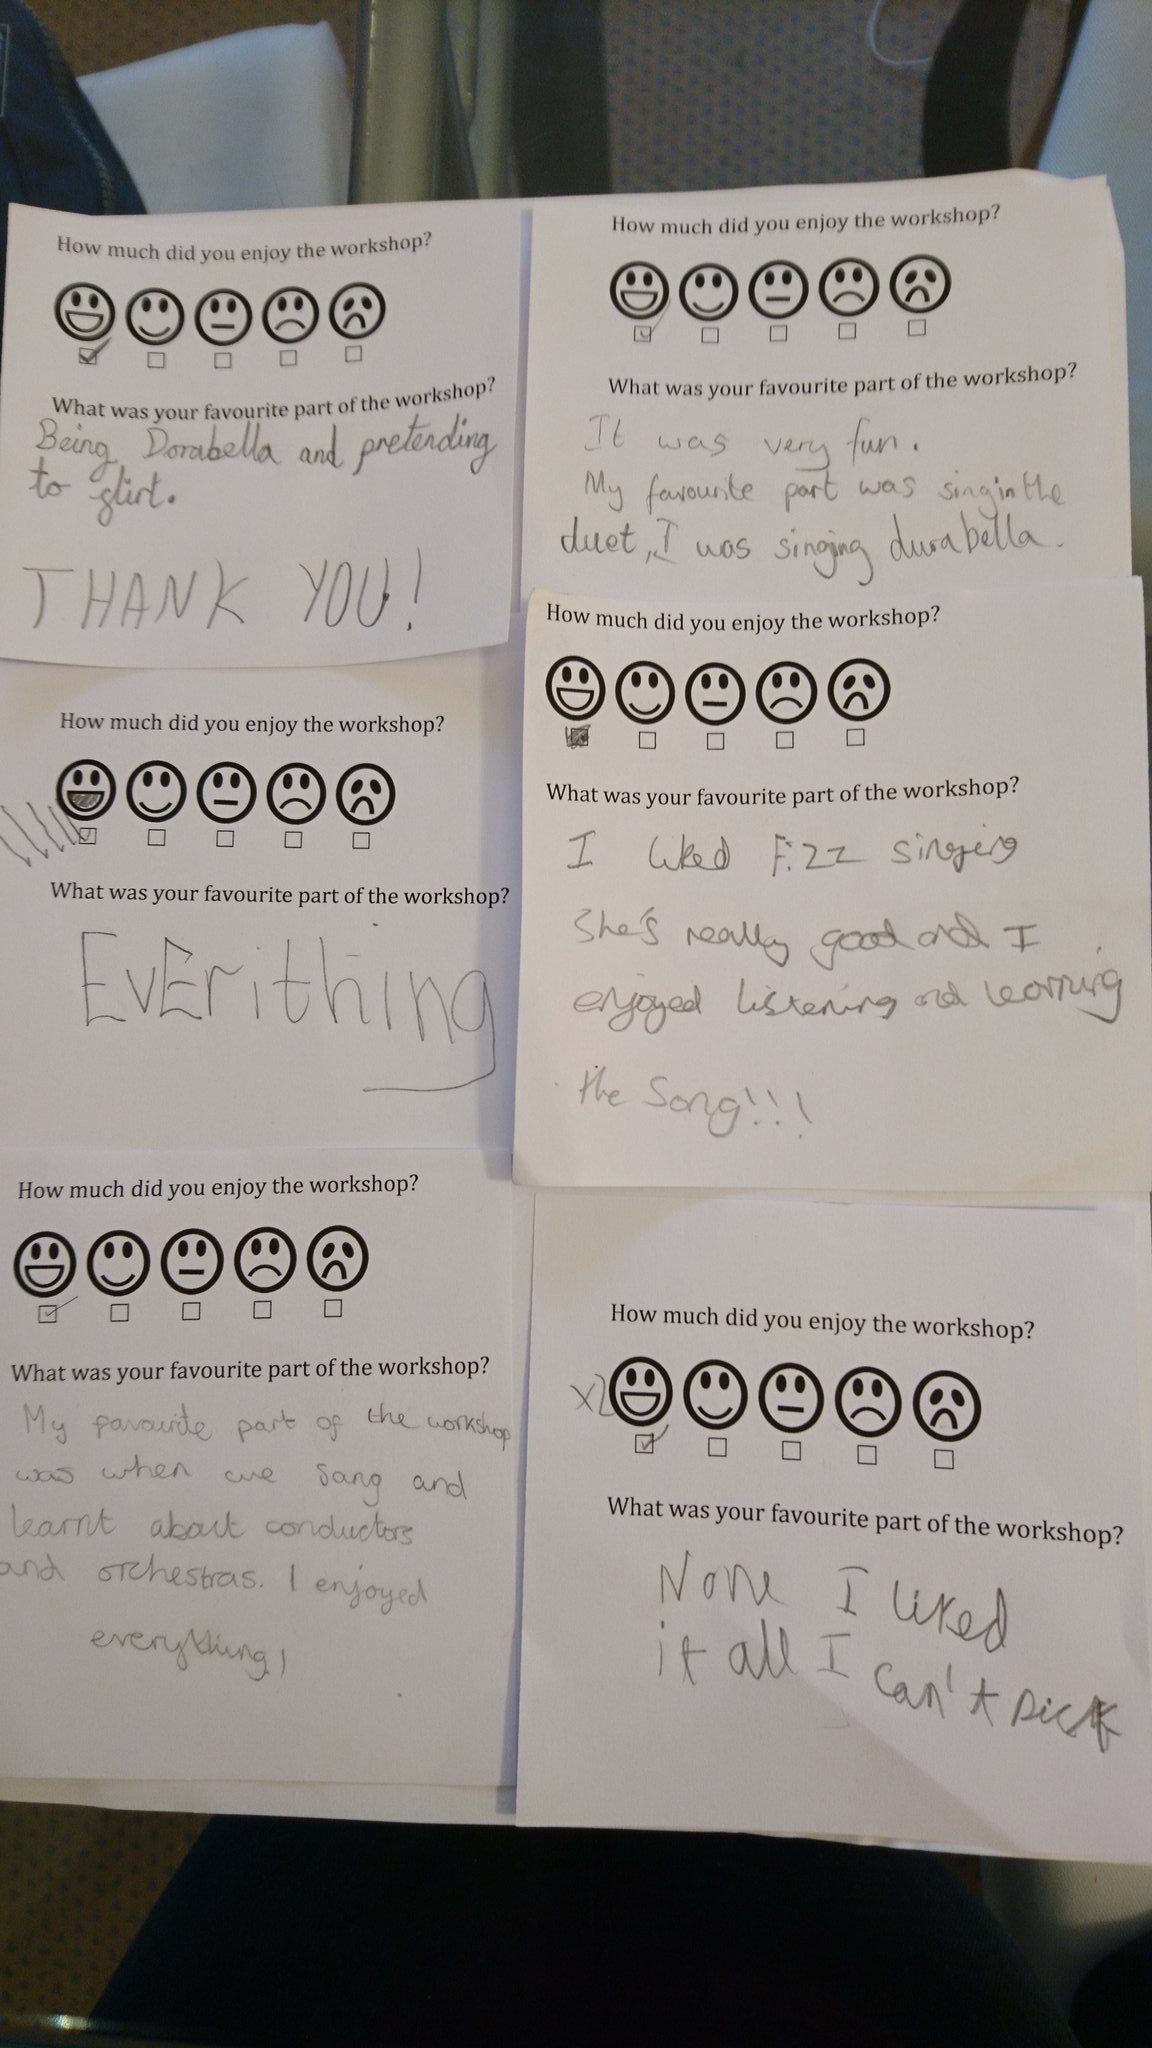 How much did you enjoy the workshop?
What was your favourite part of the workshop?
Being Dorabella and pretending
to flirt.
THANK YOU!
How much did you enjoy the workshop?
What was your favourite part of the workshop?
It was very fun.
My favourite part was singin the
duet, I was singing durabella.
How much did you enjoy the workshop?
What was your favourite part of the workshop?
EvErithing
How much did you enjoy the workshop?
What was your favourite part of the workshop?
I liked Fizz singing
She's really good and I
enjoyed listening and learning
the Song!!!
How much did you enjoy the workshop?
What was your favourite part of the workshop?
My favourite part of the workshop
was when we sang and
learnt about conductors
and orchestras. I enjoyed
everything!
How much did you enjoy the workshop?
x2
What was your favourite part of the workshop?
None I liked
it all I can't pick